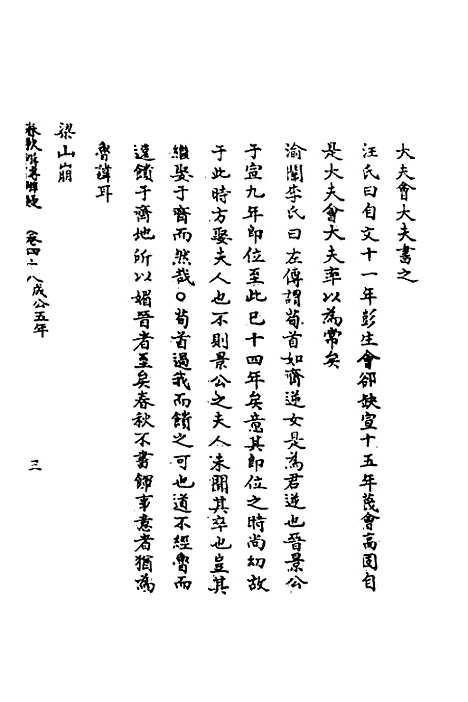 大夫會大夫書之
汪氏曰自文十一年彭生會郤缺宣十五年蔑會高固自
是大夫會大夫率以為常矣
渝關李氏曰左傳謂荀首如齊逆女是為君逆也晉景公
于宣九年即位至此已十四年矣意其即位之時尚幼故
于此時方娶夫人也不則景公之夫人未聞其卒也豈其
繼娶于齊而然哉○荀首過我而饋之可也道不經魯而
遠饋于齊地所以媚晉者至矣春秋不書饋事意者猶為
魯諱耳
梁山崩
春秋 卷四十八成公五年
三